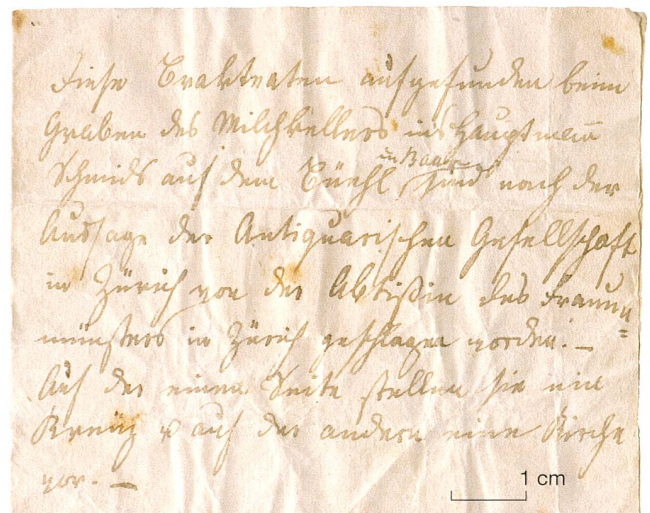 Diese Brakteaten aufgefunden beim
Graben des Milchkellers ins Hauptmañ
in Baar
Schmids auf dem Büehl, sind nach der
Aussage der Antiquarischen Gesellschaft
in Zürich von der Abtißin des Fraum̄=
münsters in Zürich geschlagen worden. —
Auf der einen Seite stellen sie ein
Kreuz u auf der andern eine Kirche
vor. —
1 cm